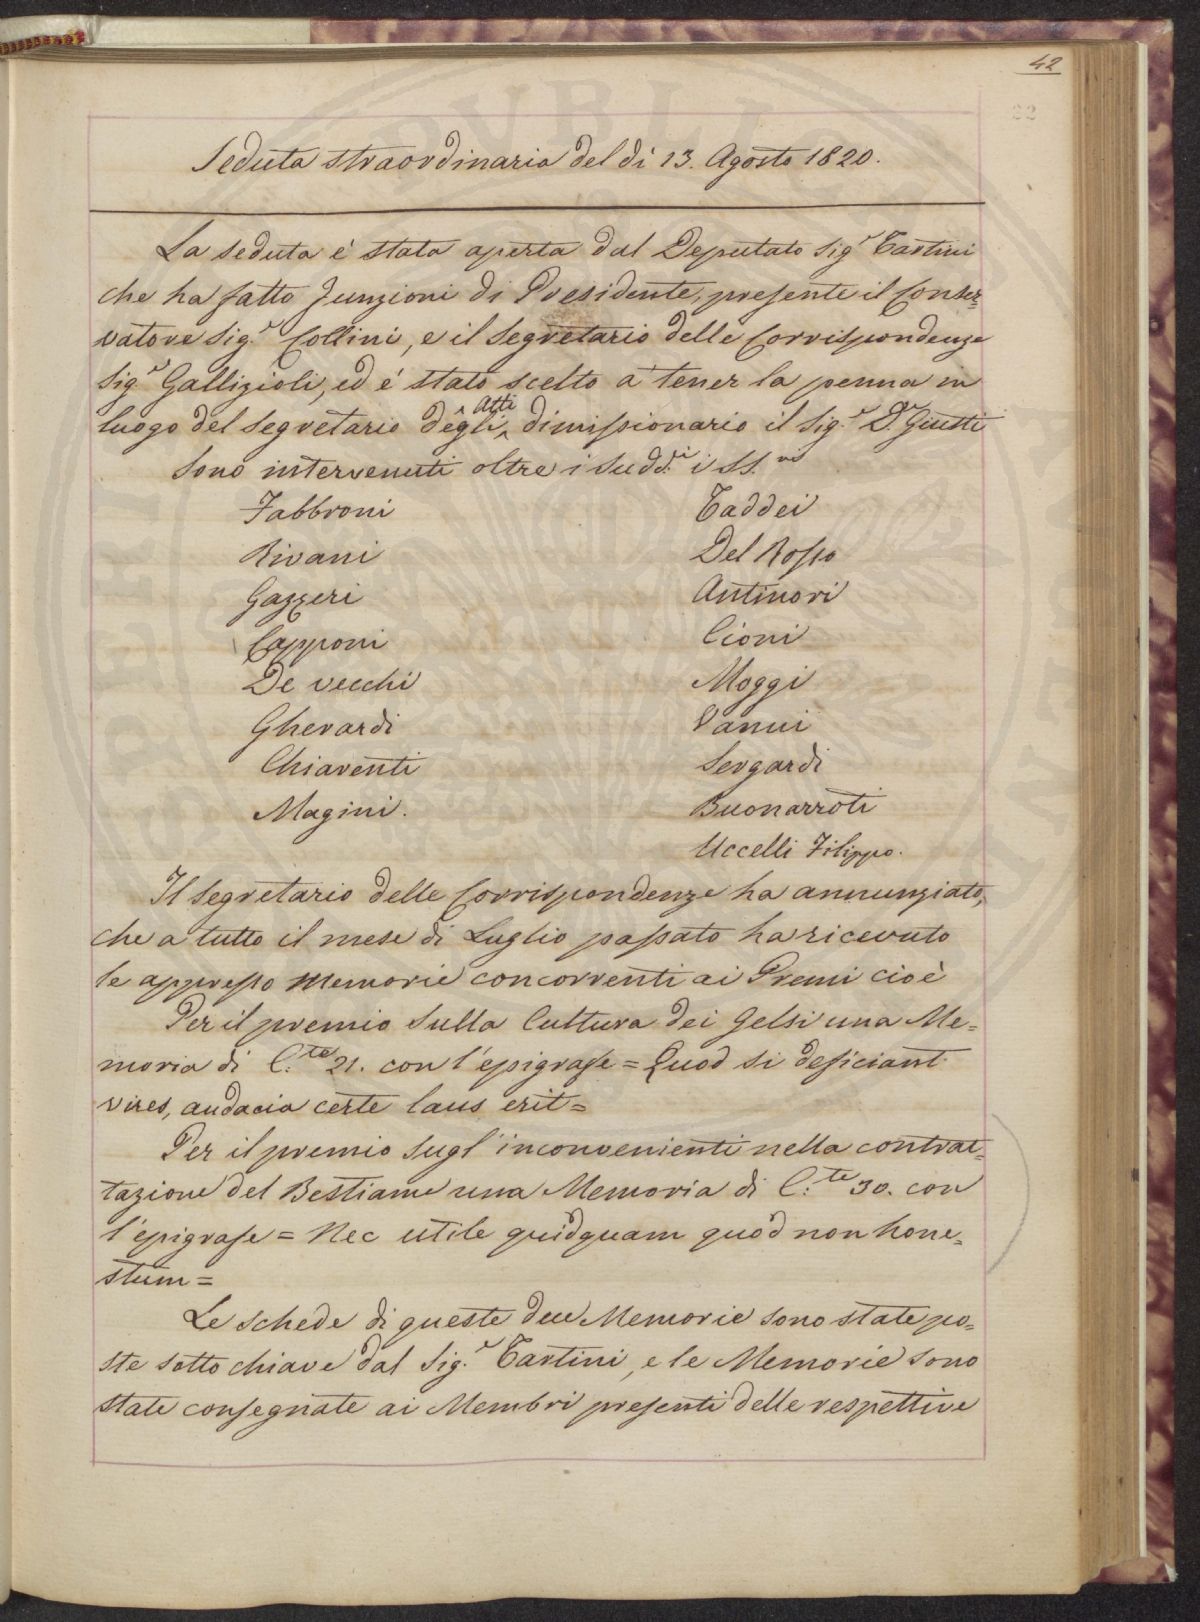 42
Seduta straordinaria del dì 13. Agosto 1820.
La seduta è stata aperta dal Deputato Sig.r Tartini
che ha fatto funzioni di Presidente, presente il Conser=
vatore Sig.r Collini, e il Segretario delle Corrispondenze
Sig.r Gallizioli, ed è stato scelto a tener la penna in
luogo del Segretario degli Atti dimissionario il Sig.r D.r Giusti
Sono intervenuti oltre i Sudd.i i SS.ri
Fabbroni
Rivani
Gazzeri
Capponi
De Vecchi
Gherardi
Chiarenti
Magini.
Taddei
Del Rosso
Antinori
Cioni
Moggi
Vanni
Sergardi
Buonarroti
Uccelli Filippo.
Il Segretario delle Corrispondenze ha annunziato,
che a tutto il mese di Luglio passato ha ricevuto
le appresso Memorie concorrenti ai Premi cioè
Per il premio Sulla Cultura dei Gelsi una Me=
moria di C.te 21. con l'epigrafe = Quod si deficiant
vires, audacia certe laus erit=
Per il premio Sugl'inconvenienti nella contrat=
tazione del Bestiame una Memoria di C.te 30. con
l'epigrafe = Nec utile quidquam quod non hone=
stum=
Le schede di queste due Memorie sono state po=
ste sotto chiave dal Sig.r Tartini, e le Memorie sono
state consegnate ai Membri presenti delle respettive